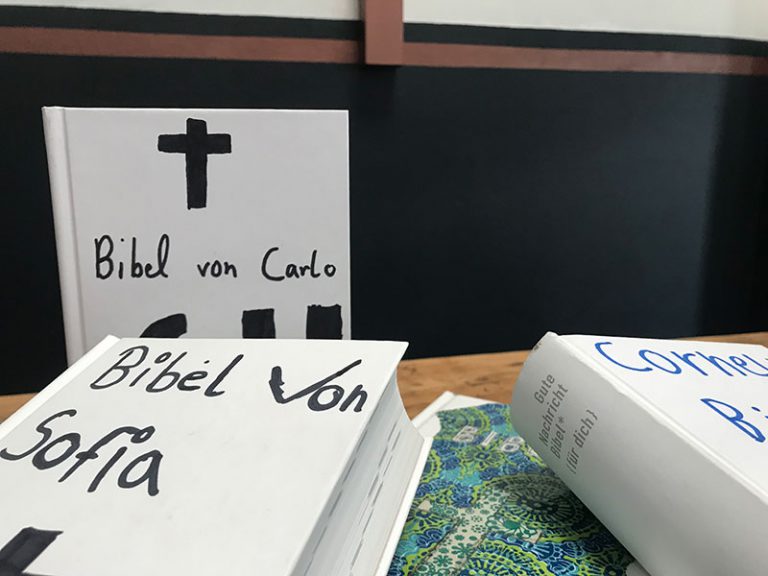 Bibel von Carlo
Bibel Von
Sofia
Gute
Nachricht
Bibel*
(für dich)